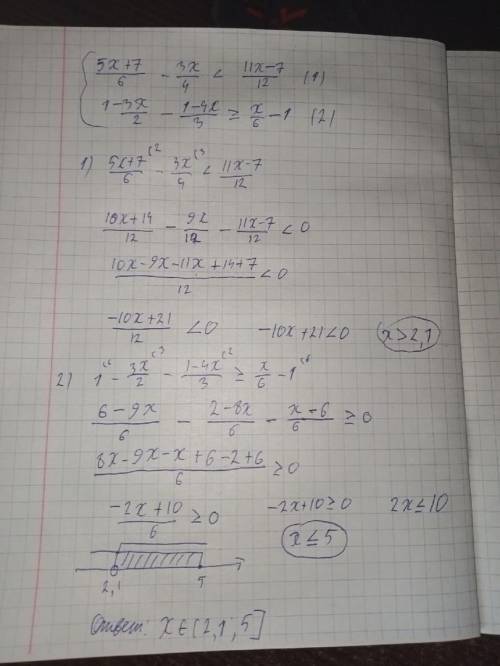 { (5x+7)/6 - 3x/4 < (11x-7)/12 (1)
1-3x/2 - (1-4x)/3 ≥ x/6 - 1 (2)
1) (5x+7)/6 (2 - 3x/4 (3 < (11x-7)/12
(10x+14)/12 - 9x/12 - (11x-7)/12 < 0
(10x-9x-11x+14+7)/12 < 0
(-10x+21)/12 < 0 -10x+21<0 x>2,1
2) 1 (6 - 3x/2 (3 - (1-4x)/3 (2 ≥ x/6 - 1 (6
(6-9x)/6 - (2-8x)/6 - (x-6)/6 ≥ 0
(8x-9x-x+6-2+6)/6 ≥ 0
(-2x+10)/6 ≥ 0 -2x+10≥0 2x≤10
x≤5
2,1 5
Ответ: x∈(2,1;5]